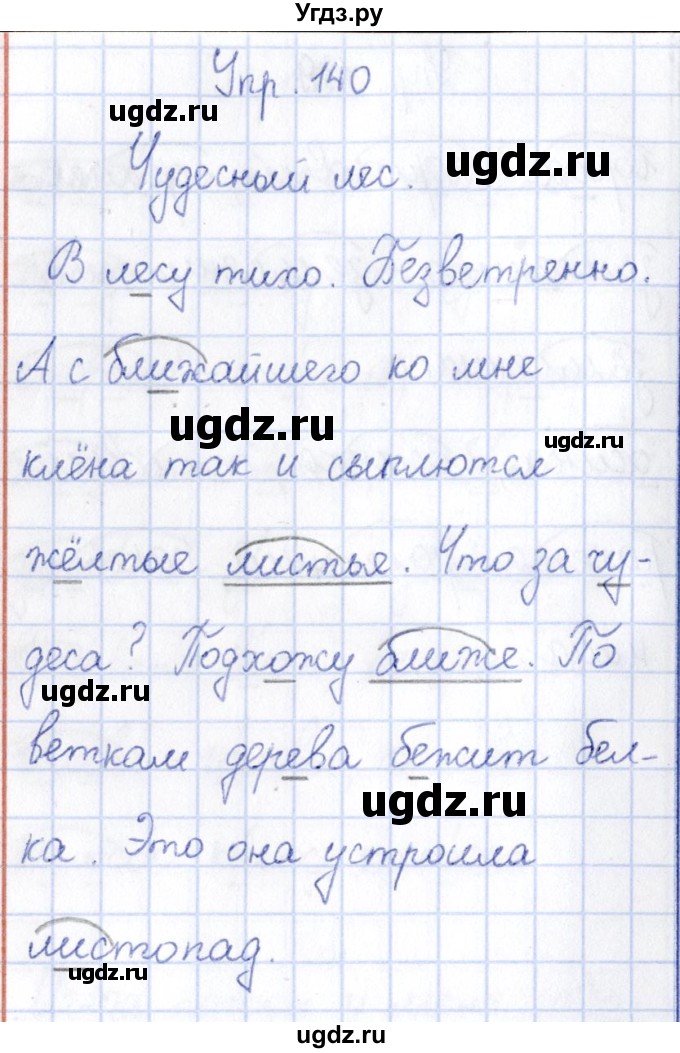 Угдз.ру
Упр. 140
ugdz.ru
Чудесный лес.
ugdz.ru
В лесу тихо. Безветренно.
А с ближайшего ко мне
ugdz.ru
ugdz.ru
клёна так и сыплются
жёлтые листья. Что за чу-
деса? Подхожу ближе. По
ugdz.ru
веткам дерева бежит бел-
ugdz.ru
ка. Это она устроила
листопад.
ugdz.ru
ugdz.ru